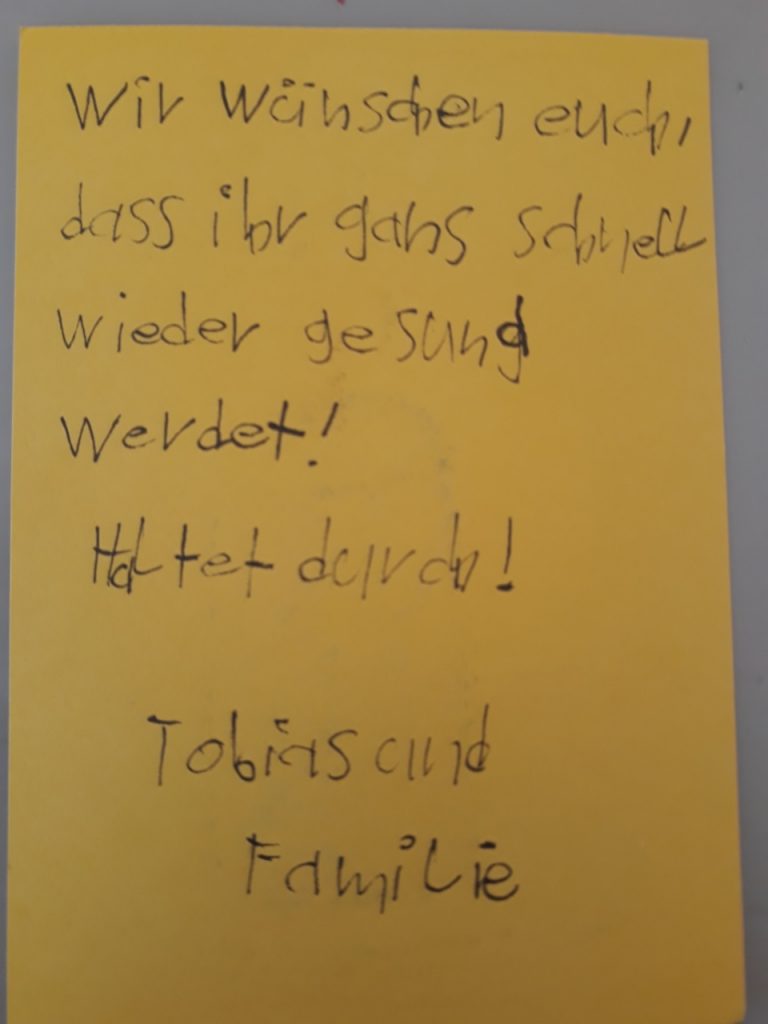 Wir wünschen euch,
dass ihr gans schnell
wieder gesund
werdet!
Haltet durch!
Tobias und
Familie